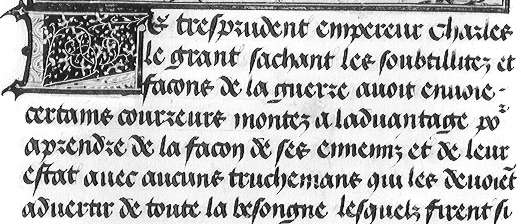 Le tresprudent empereur Charles
le grant sachant les soubtillitez et
facons de la guerre auoit enuoie
certains courreurs montez a laduantage por
aprendre de la facon de ses ennemis et de leur
estat auec aucuns truchemans qui les deuoiẽt
aduertir de toute la besongne lesquelz firent si